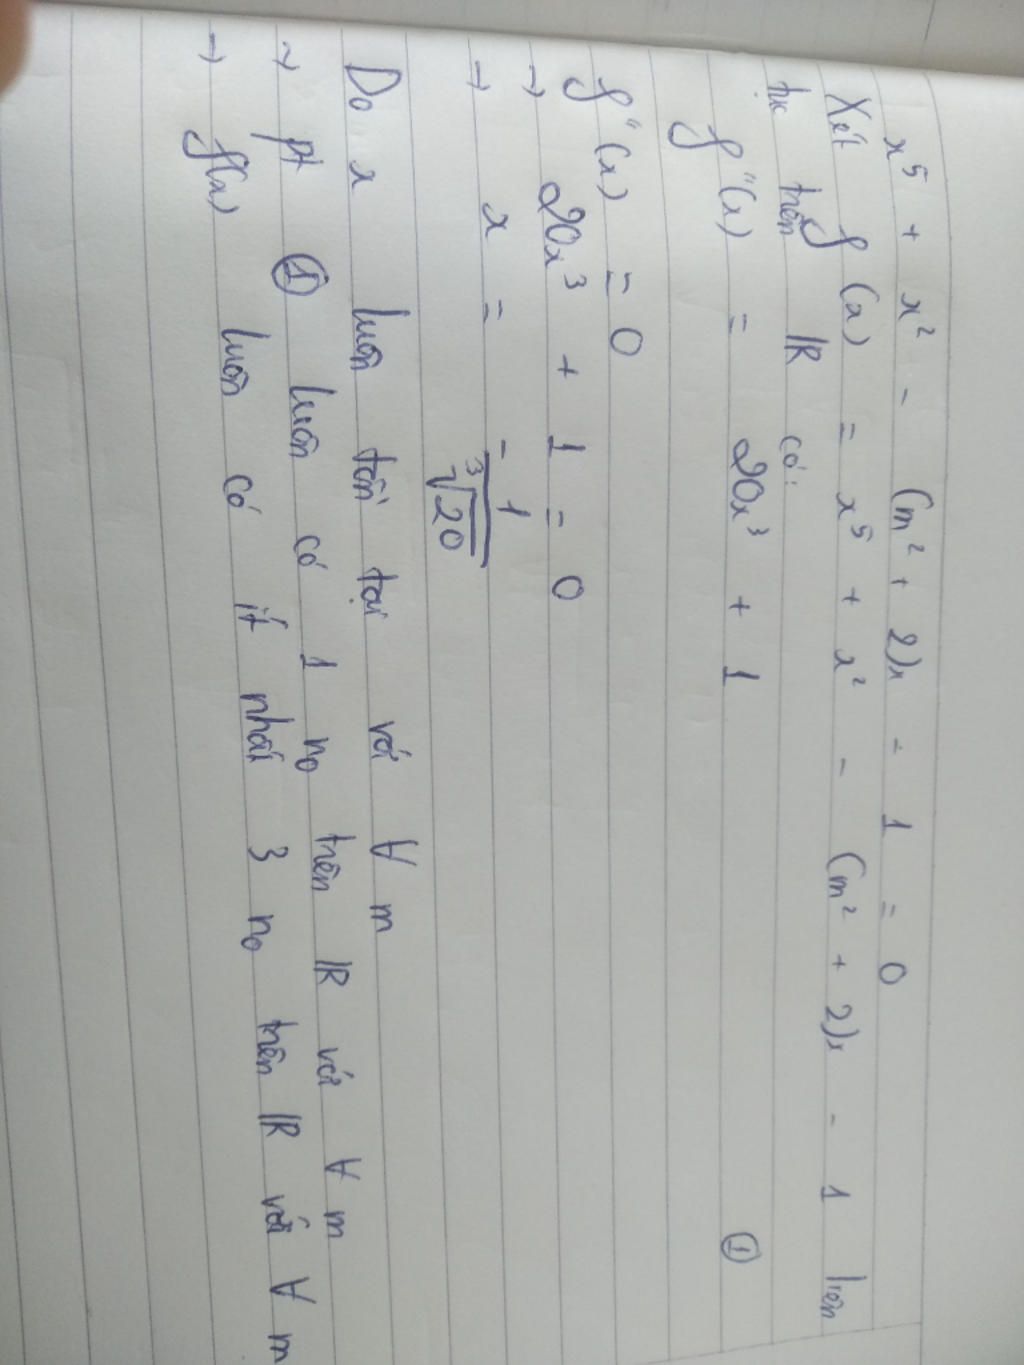 x⁵ + x² - (m² + 2)x - 1 = 0
Xét f(x) = x⁵ + x² - (m² + 2)x - 1 liên
tục trên ℝ có:
f''(x) = 20x³ + 1 ①
f''(x) = 0
→ 20x³ + 1 = 0
→ x = -1/∛20
Do x luôn tồn tại với ∀ m
→ pt ① luôn có 1 n₀ trên ℝ với ∀ m
→ f(x) luôn có ít nhất 3 n₀ trên ℝ với ∀ m